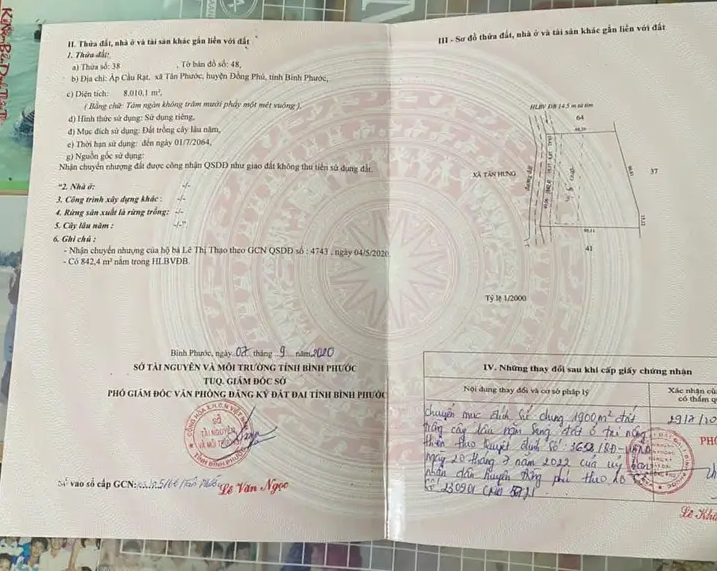 II. Thửa đất, nhà ở và tài sản khác gắn liền với đất
1. Thửa đất:
a) Thửa số: 38 , Tờ bản đồ số: 48,
b) Địa chỉ: Ấp Cầu Rạt, xã Tân Phước, huyện Đồng Phú, tỉnh Bình Phước,
c) Diện tích: 8.010,1 m²,
( Bằng chữ: Tám ngàn không trăm mười phẩy một mét vuông),
d) Hình thức sử dụng: Sử dụng riêng,
đ) Mục đích sử dụng: Đất trồng cây lâu năm,
e) Thời hạn sử dụng: đến ngày 01/7/2064,
g) Nguồn gốc sử dụng:
Nhận chuyển nhượng đất được công nhận QSDĐ như giao đất không thu tiền sử dụng đất.
"2. Nhà ở: -/-
3. Công trình xây dựng khác: -/-
4. Rừng sản xuất là rừng trồng: -/-
5. Cây lâu năm : -/-"
6. Ghi chú :
- Nhận chuyển nhượng của hộ bà Lê Thị Thạo theo GCN QSDĐ số : 4743 , ngày 04/5/2020
- Có 842,4 m² nằm trong HLBVĐB.
Bình Phước, ngày 07 tháng 9 năm 2020
SỞ TÀI NGUYÊN VÀ MÔI TRƯỜNG TỈNH BÌNH PHƯỚC
TUQ. GIÁM ĐỐC SỞ
PHÓ GIÁM ĐỐC VĂN PHÒNG ĐĂNG KÝ ĐẤT ĐAI TỈNH BÌNH PHƯỚC
SỞ
TÀI NGUYÊN
VÀ MÔI TRƯỜNG
TỈNH BÌNH PHƯỚC
Số vào sổ cấp GCN:
Lê Văn Ngọc
III - Sơ đồ thửa đất, nhà ở và tài sản khác gắn liền với đất
HLBV ĐB 14.5 m từ tim
64
XÃ TÂN HƯNG
37
41
Tỷ lệ 1/2000
IV. Những thay đổi sau khi cấp giấy chứng nhận
Nội dung thay đổi và cơ sở pháp lý
Xác nhận của
có thẩm q
Chuyển mục đích sử dụng 1900m² đất
trồng cây lâu năm sang đất ở tại nông
thôn theo Quyết định số 3652/QĐ-UBND
ngày 28 tháng 7 năm 2022 của uỷ
nhân dân huyện Đồng Phú theo hồ
số
29/7/20
PHÓ
Lê Kh